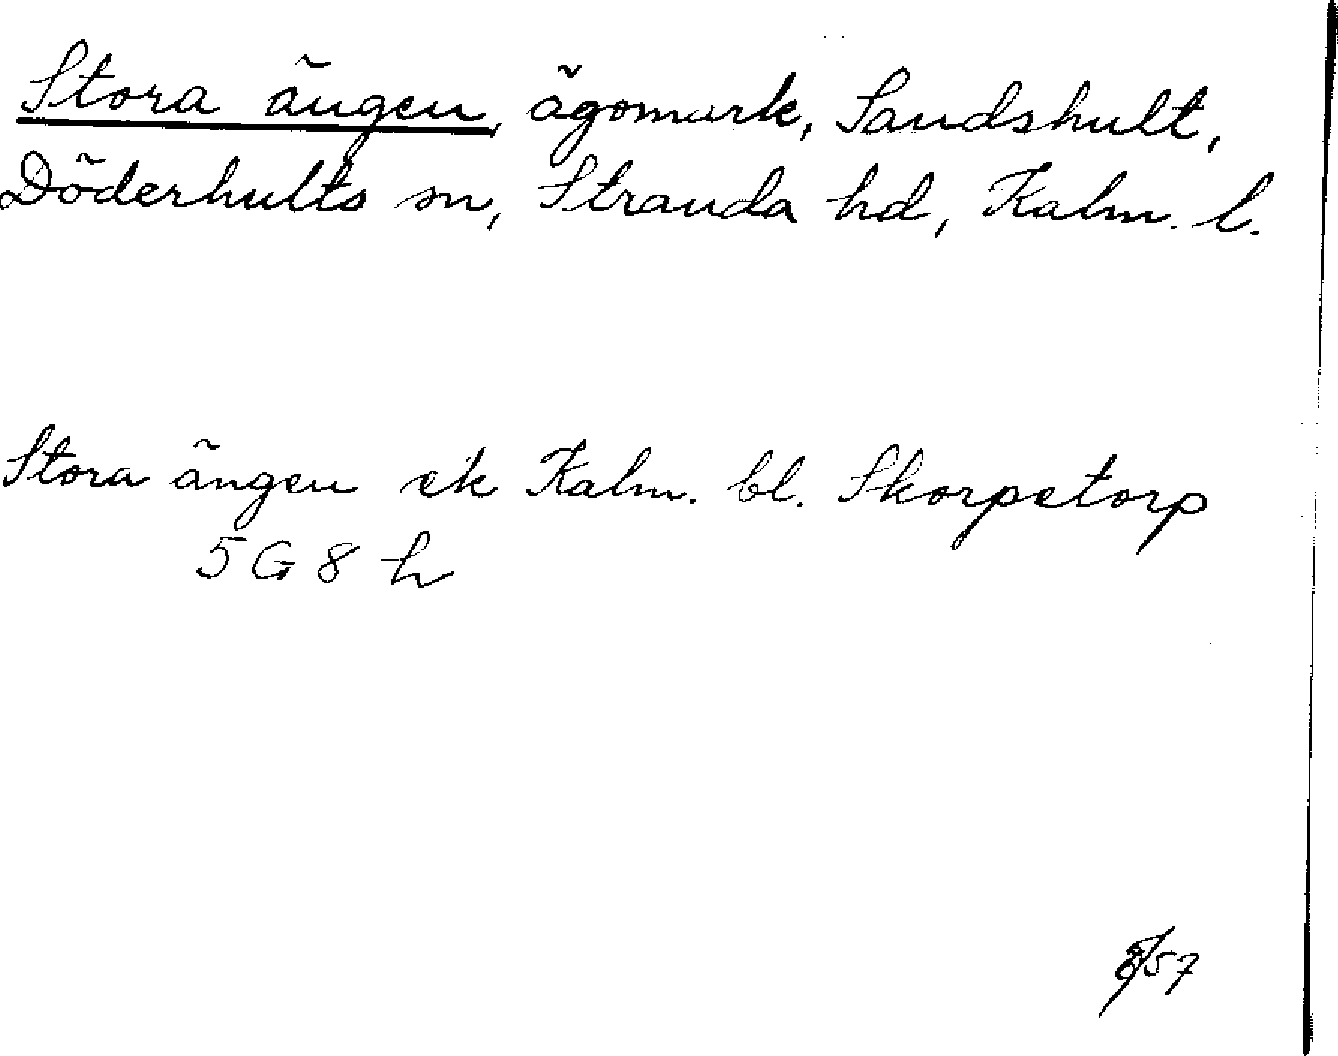 Stora ängen, ägomark, Sandshult,
Döderhults sn, Stranda hd, Kalm. l.
Stora ängen ek Kalm. bl. Skorpetorp
5 G 8 h
/57